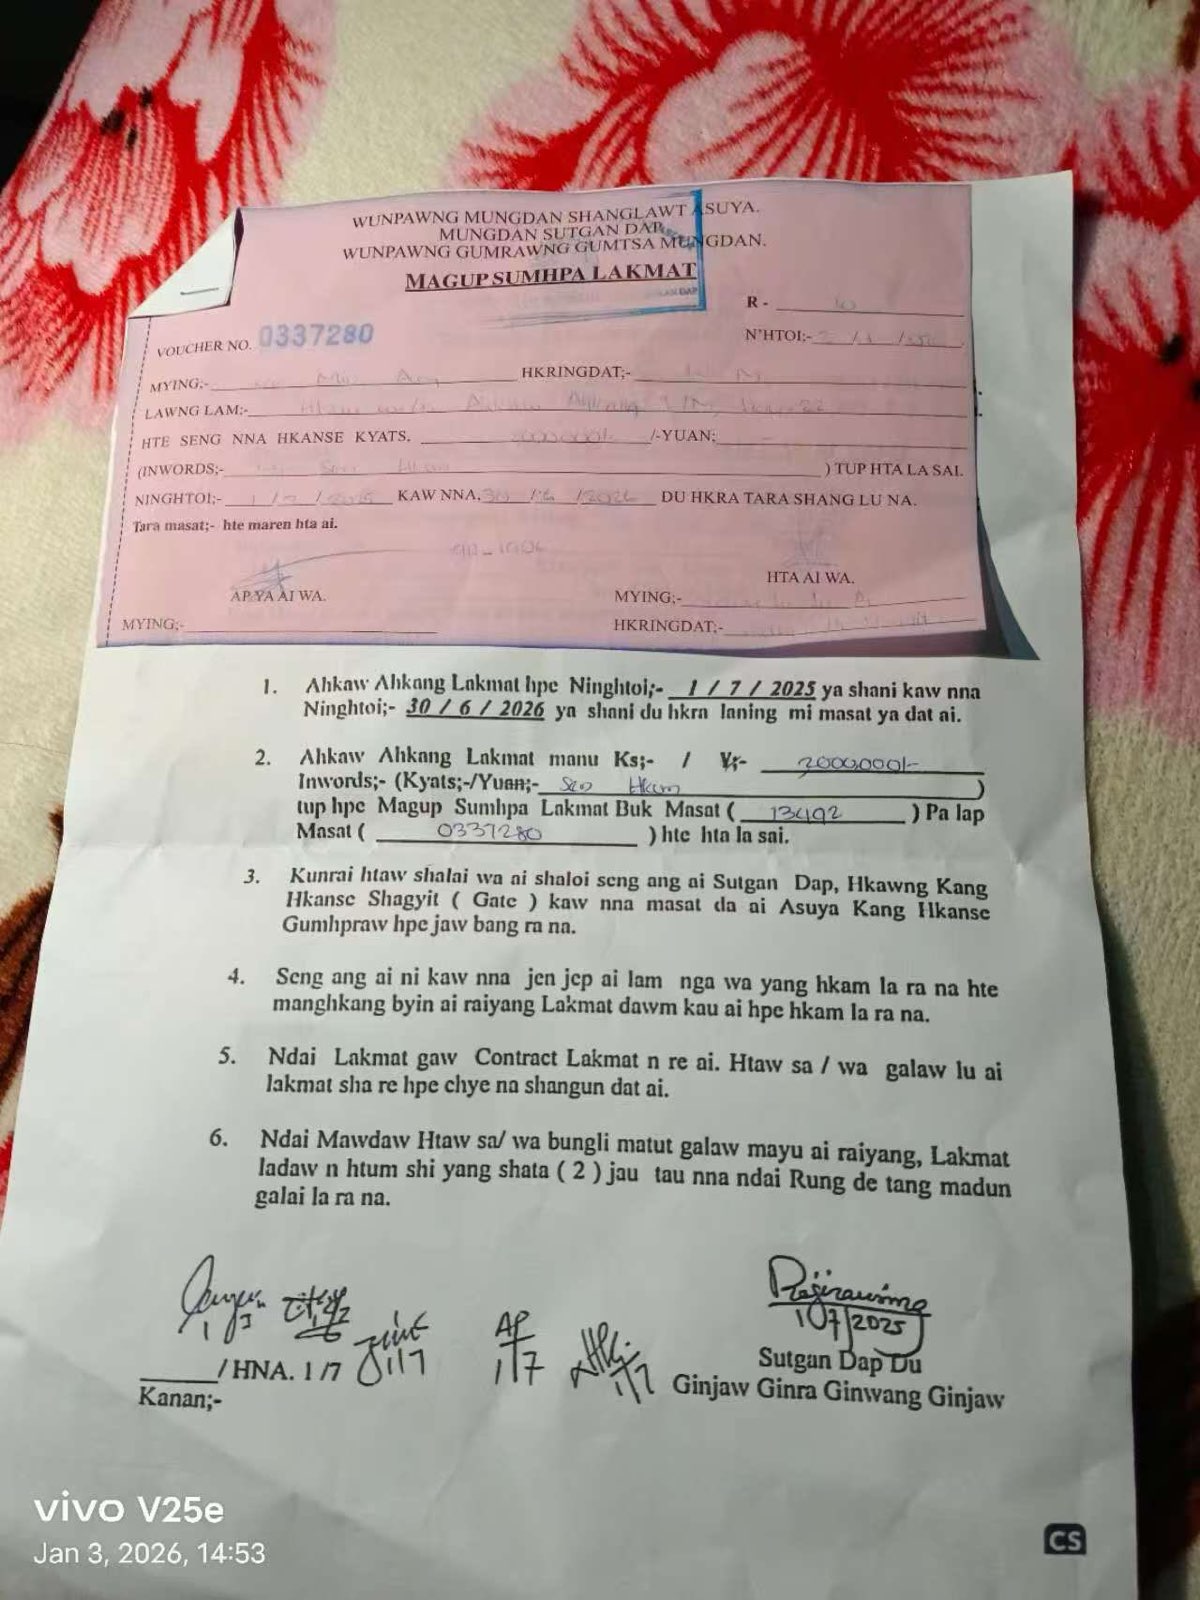 WUNPAWNG MUNGDAN SHANGLAWT ASUYA.
MUNGDAN SUTGAN DAP,
WUNPAWNG GUMRAWNG GUMTSA MUNGDAN.
MAGUP SUMHPA LAKMAT
R -
VOUCHER NO. 0337280
N'HTOI;-
MYING;- HKRINGDAT;-
LAWNG LAM;-
HTE SENG NNA HKANSE KYATS. /-YUAN;
(INWORDS;- ) TUP HTA LA SAI.
NINGHTOI;- 1 / 7 / 2025 KAW NNA. 30 / 6 / 2026 DU HKRA TARA SHANG LU NA.
Tara masat;- hte maren hta ai.
AP YA AI WA. HTA AI WA.
MYING;-
MYING;- HKRINGDAT;-
1. Ahkaw Ahkang Lakmat hpe Ninghtoi;- 1 / 7 / 2025 ya shani kaw nna
Ninghtoi;- 30 / 6 / 2026 ya shani du hkra laning mi masat ya dat ai.
2. Ahkaw Ahkang Lakmat manu Ks;- / ¥;-
Inwords;- (Kyats;-/Yuan;- )
tup hpe Magup Sumhpa Lakmat Buk Masat ( 13492 ) Pa lap
Masat ( 0337280 ) hte hta la sai.
3. Kunrai htaw shalai wa ai shaloi seng ang ai Sutgan Dap, Hkawng Kang
Hkanse Shagyit ( Gate ) kaw nna masat da ai Asuya Kang Hkanse
Gumhpraw hpe jaw bang ra na.
4. Seng ang ai ni kaw nna jen jep ai lam nga wa yang hkam la ra na hte
manghkang byin ai raiyang Lakmat dawm kau ai hpe hkam la ra na.
5. Ndai Lakmat gaw Contract Lakmat n re ai. Htaw sa / wa galaw lu ai
lakmat sha re hpe chye na shangun dat ai.
6. Ndai Mawdaw Htaw sa/ wa bungli matut galaw mayu ai raiyang, Lakmat
ladaw n htum shi yang shata ( 2 ) jau tau nna ndai Rung de tang madun
galai la ra na.
1/7/2025
AP
1/7
1/7
/ HNA. 1 /7
Kanan;-
Sutgan Dap Du
Ginjaw Ginra Ginwang Ginjaw
vivo V25e
Jan 3, 2026, 14:53
CS